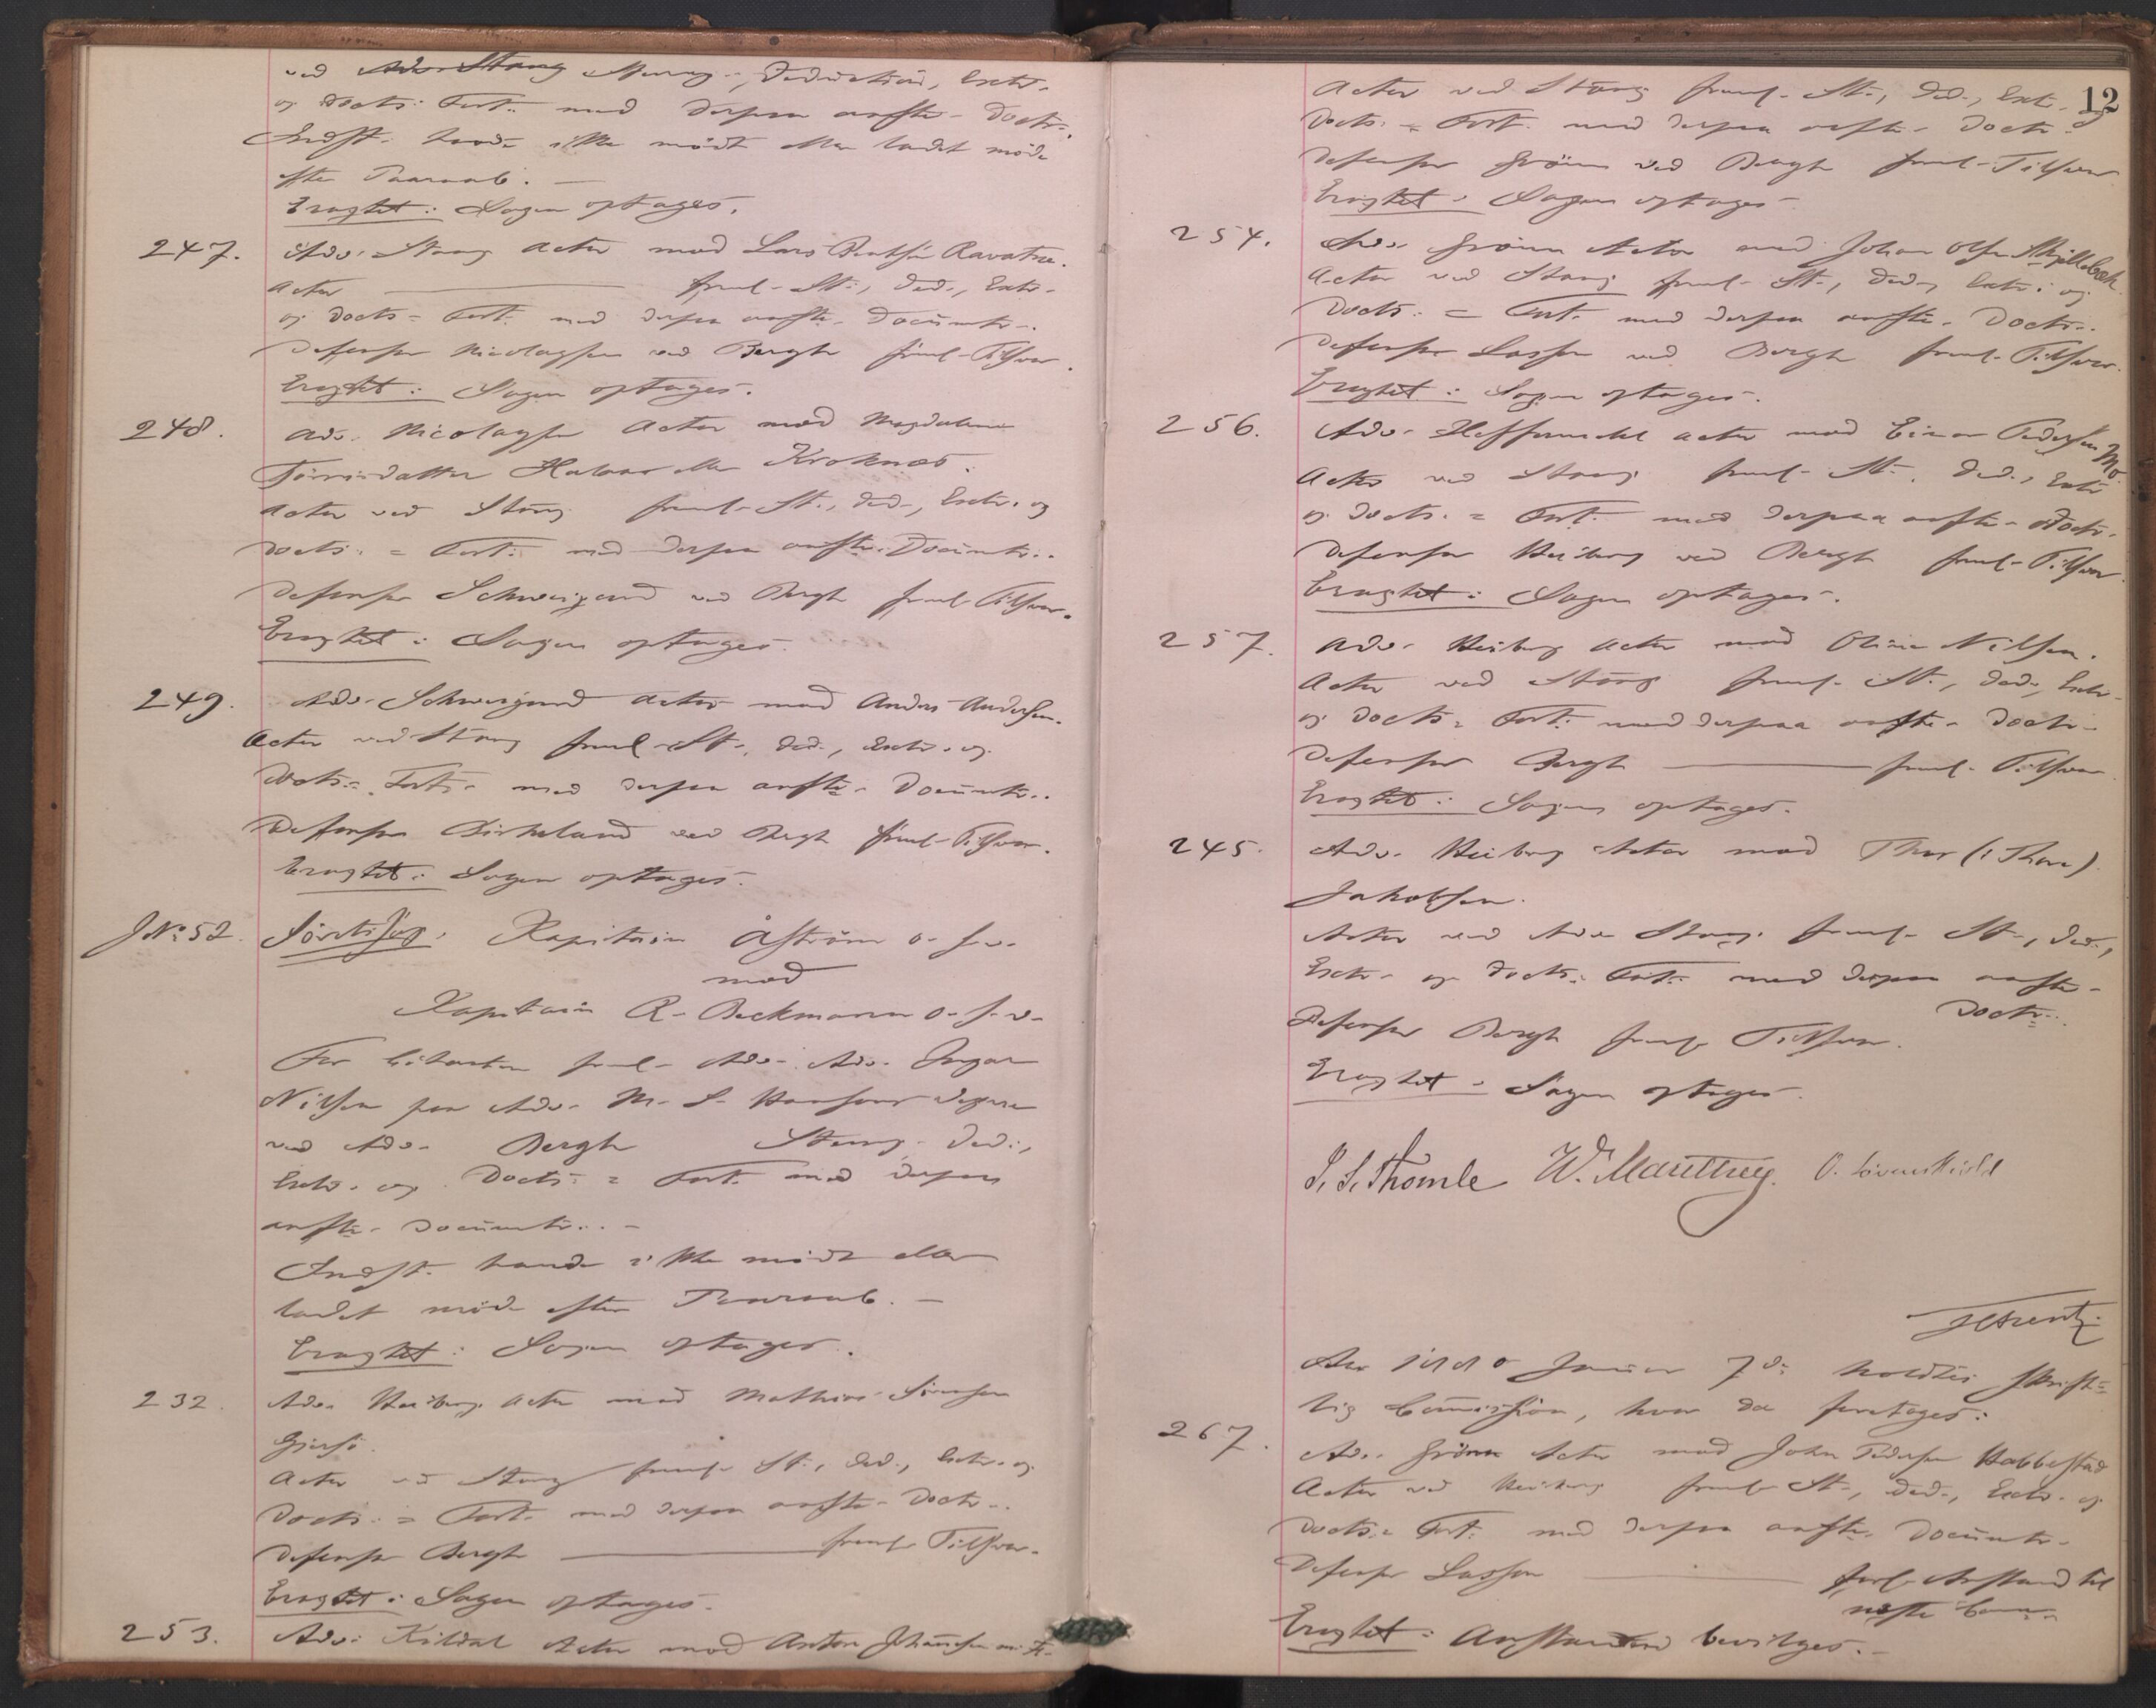 ved Adv. Stang Stevng, Deduction, Extr.
og Docts: Fort. med derpaa anfte. Docts.
Indst. havde ikke mödt eller ladet möde
efter Paaraab. —
Eragtet: Sagen optages.
247. Adv. Stang Actor mod Lars Ravatn.
Actor — freml. St., Ded., Extr.
og Docts = Fort. med derpaa anfte. Documtr.
Defensor Nicolaysen ved Bergh freml. Tilsvar.
Eragtet: Sagen optages.
248. Adv. Nicolaysen Actor mod Magdalena
Halvor eller Kroknes.
Actor ved Stang freml. St., Ded., Extr. og
Docts. = Fort. med derpaa anfte. Documtr.
Defensor Schweigaard ved Bergh freml. Tilsvar.
Eragtet: Sagen optages.
249. Adv. Schweigaard Actor mod Anders Andersen.
Actor ved Stang freml. St., Ded., Extr. og
Docts = Fort. med derpaa anfte. Documtr.
Defensor Birkeland ved Bergh freml. Tilsvar.
Eragtet: Sagen optages.
J No 52. Kapitain Åström o. f. v.
mod
Kapitain R. Beckmann o. f. v.
For Citanten freml. Adv. Adv. Yngvar
Nilsen paa Adv. M. S. Hansons Vegne
ved Adv. Bergh Stevng. Ded.,
Extr. og Docts = Fort. med derpaa
anfte. Documtr. —
Indst. havde ikke mödt eller
ladet möde efter Paaraab. —
Eragtet: Sagen optages.
232. Adv. Heiberg Actor mod Mathias Sörensen
Gjersö.
Actor ved Stang freml. St., Ded., Extr. og
Docts. = Fort. med derpaa anfte. Docts.
Defensor Bergh — freml. Tilsvar.
Eragtet: Sagen optages.
253. Adv. Kildal Actor mod Anton Johannesen m. fl.
12
Actor ved Stang freml. St., Ded., Extr. og
Docts. = Fort. med derpaa anfte. Docts.
Defensor Grönn ved Bergh freml. Tilsvar
Eragtet: Sagen optages.
254. Adv. Grönn Actor mod Johan Olsen Skjellebek.
Actor ved Stang freml. St., Ded., Extr. og
Docts. = Fort. med derpaa anfte. Docts.
Defensor Lasson ved Bergh freml. Tilsvar.
Eragtet: Sagen optages.
256. Adv. Hoffgaard Actor mod Einar Pedersen Mo.
Actor ved Stang freml. St., Ded., Extr.
og Docts. = Fort. med derpaa anfte. Docts.
Defensor Heiberg ved Bergh freml. Tilsvar.
Eragtet: Sagen optages.
257. Adv. Heiberg Actor mod Oline Nilsen.
Actor ved Stang freml. St., Ded., Extr.
og Docts = Fort. med derpaa anfte. Docts.
Defensor Bergh — freml. Tilsvar.
Eragtet: Sagen optages.
245. Adv. Heiberg Actor mod Thor (: Thore)
Jakobsen.
Actor ved Adv. Stang freml. St., Ded.,
Extr. og Docts. Fort. med derpaa anfte.
Docts.
Defensor Bergh freml. Tilsvar.
Eragtet: Sagen optages.
S. S. Thomle W. O. Lövenskiold
Arentz
Aar 1880 Januar 7de holdtes skrift=
lig Commission, hvor da foretoges:
267. Adv. Grönn Actor mod John Pedersen Habbestad
Actor ved Heiberg freml. St., Ded., Extr. og
Docts. = Fort. med derpaa anfte. Documtr.
Defensor Lasson — forl. Anstand til
neste Com.
Eragtet: Anstanden bevilges. —